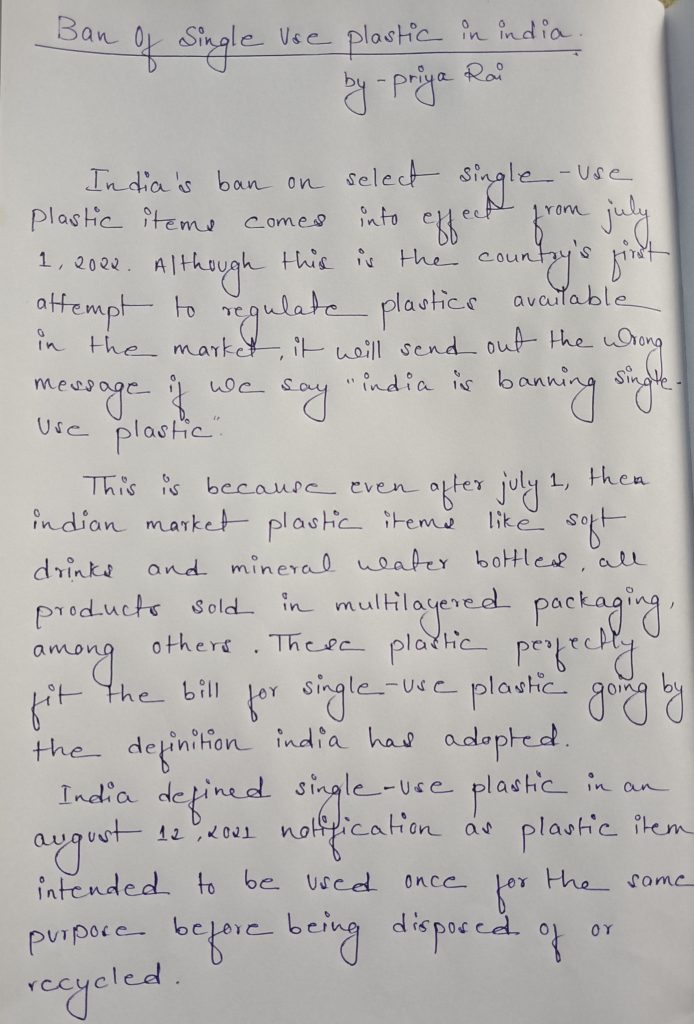 Ban Of Single Use plastic in india.
by - priya Rai
India's ban on select single-use
plastic items comes into effect from july
1, 2022. Although this is the country's first
attempt to regulate plastics available
in the market, it will send out the wrong
message if we say "india is banning single-
use plastic".
This is because even after july 1, then
indian market plastic items like soft
drinks and mineral water bottles, all
products sold in multilayered packaging,
among others. These plastic perfectly
fit the bill for single-use plastic going by
the definition india has adopted.
India defined single-use plastic in an
august 12, 2021 notification as plastic item
intended to be used once for the same
purpose before being disposed of or
recycled.